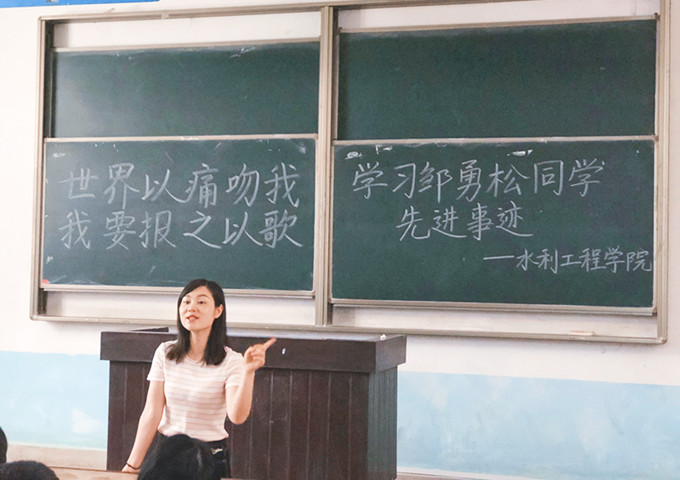 世界以痛吻我
我要报之以歌
学习邹勇松同学
先进事迹
—水利工程学院